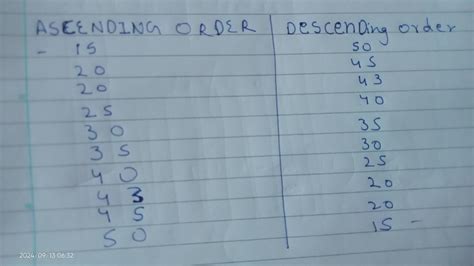 ASCENDING ORDER
- 15
20
20
25
30
35
40
43
45
50
Descending order
50
45
43
40
35
30
25
20
20
15 -
2024-09-13 06:32